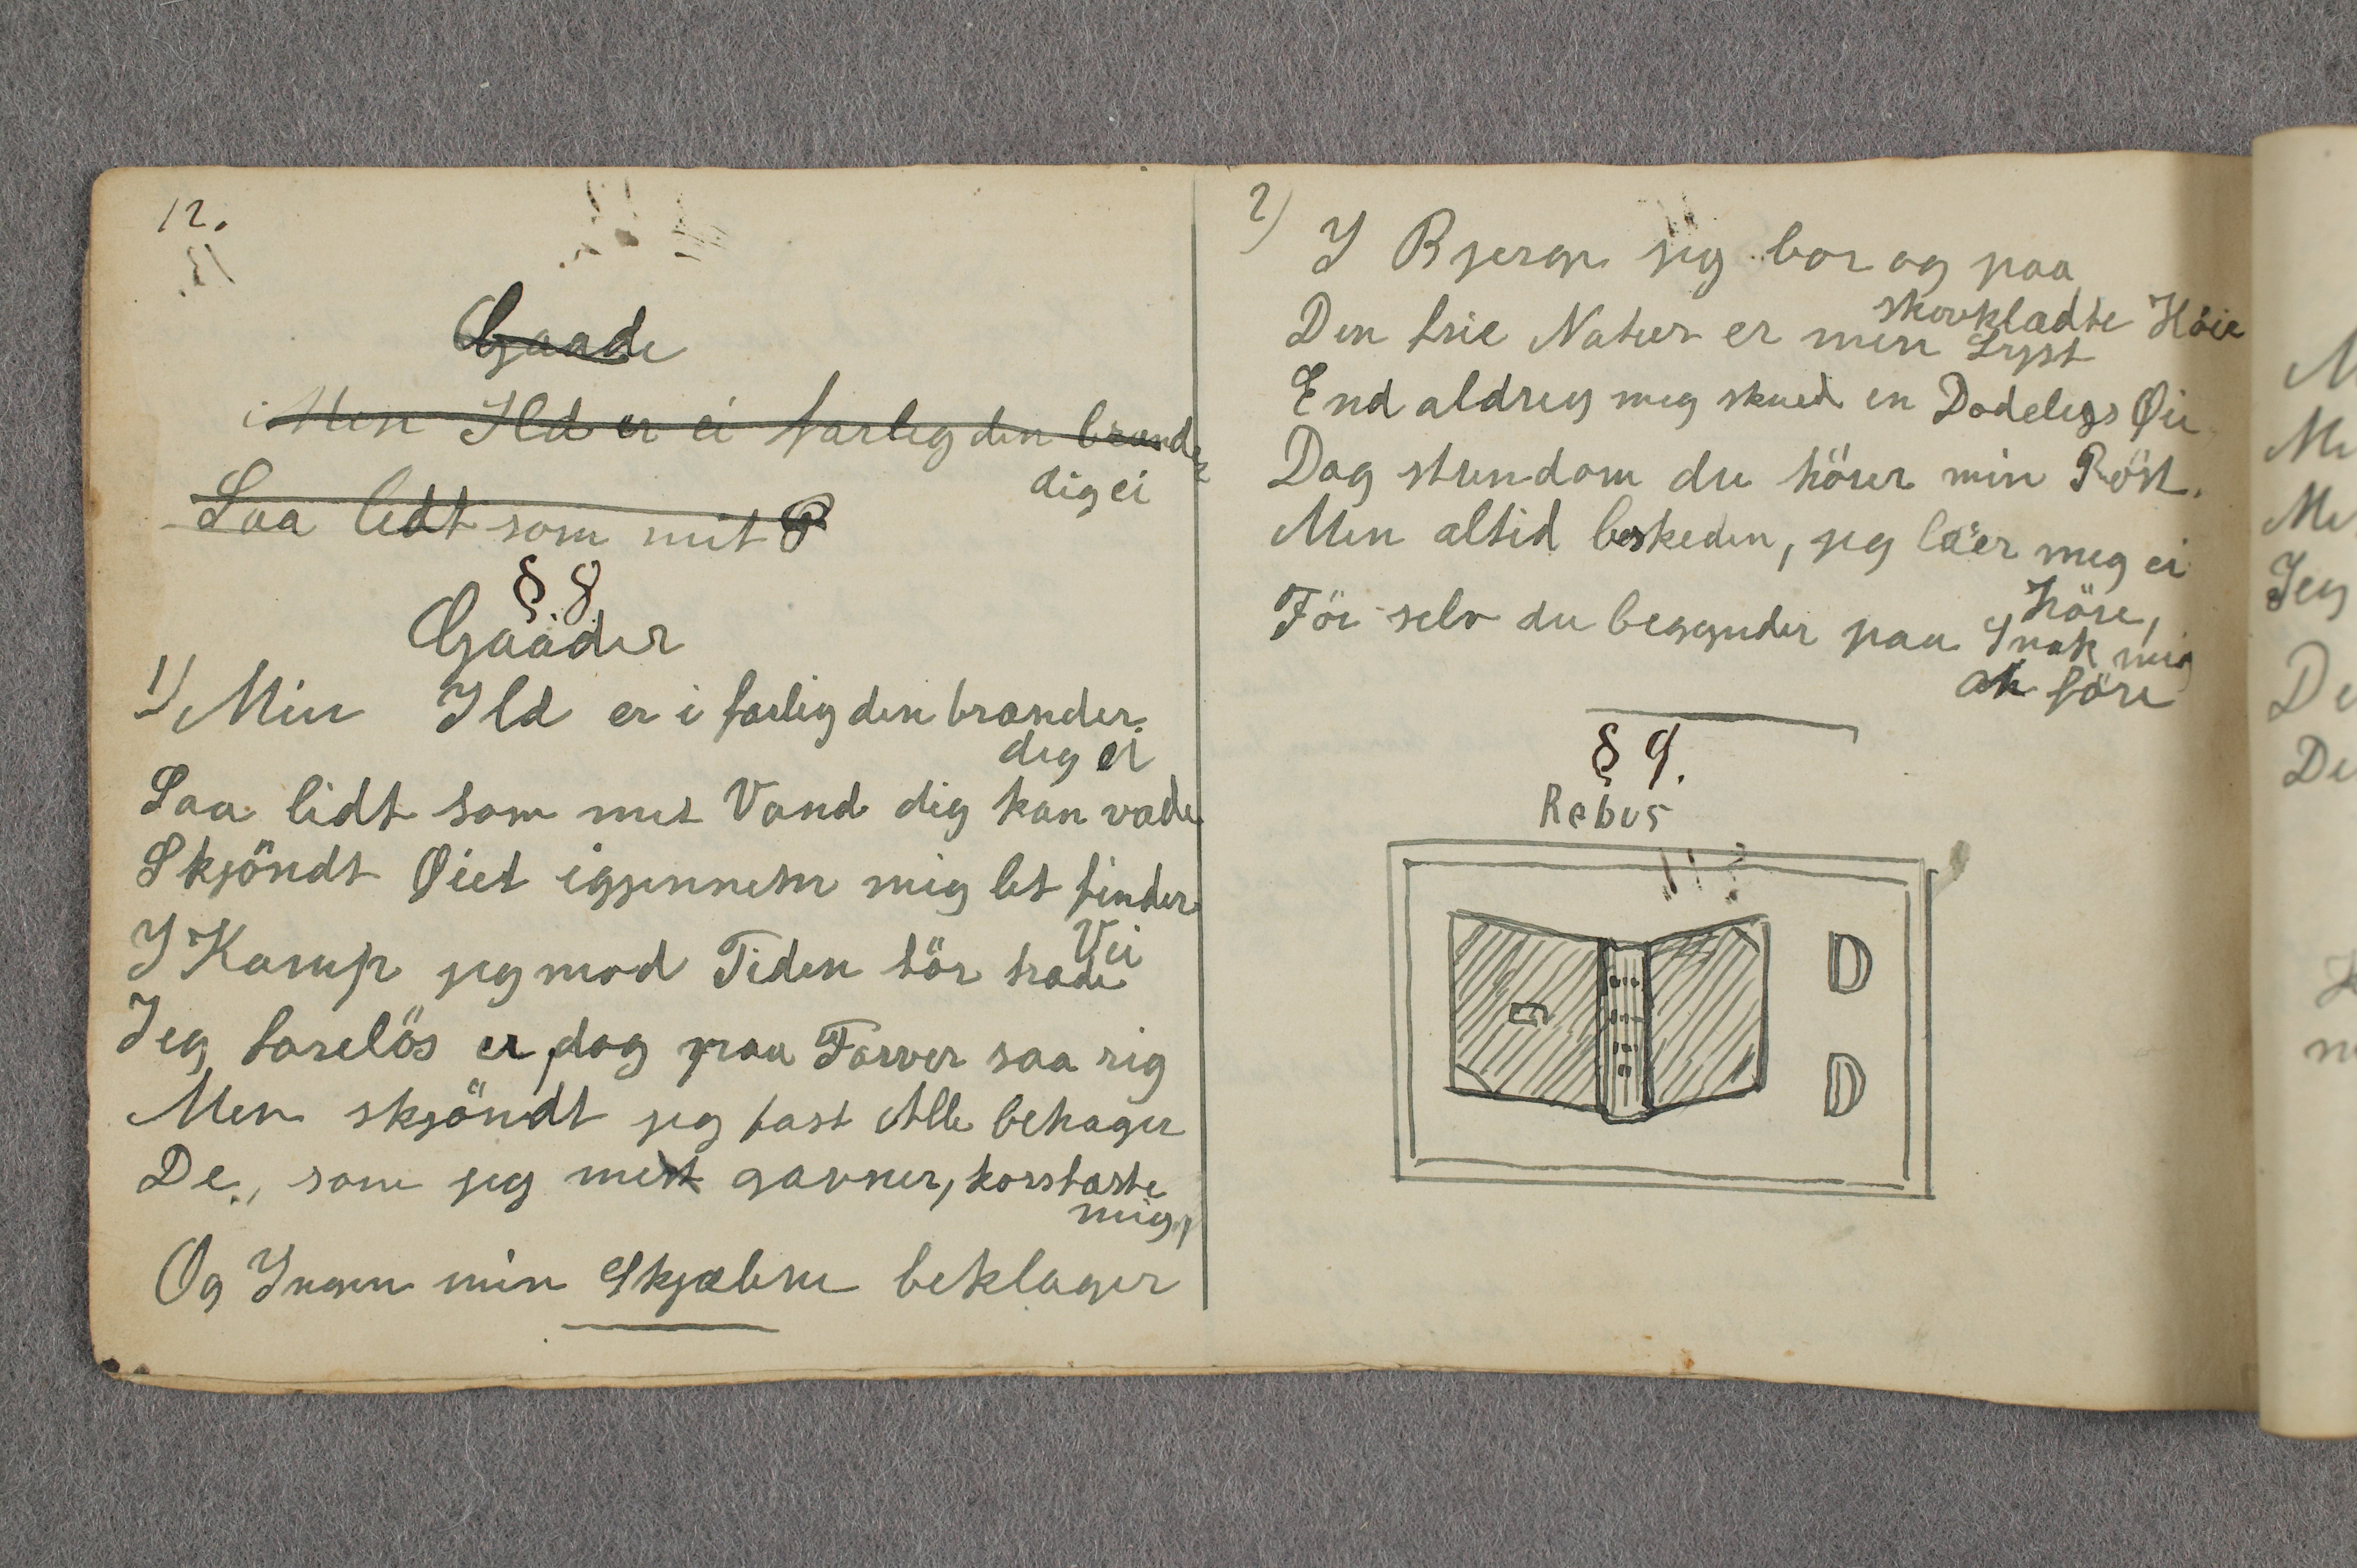 12.
Gaade
Men Ild er ei farlig den brander
dig ei
Saa lidt som mit P
§ 8.
Gaader
1) Min Ild er i farlig den brander
dig ei
Saa lidt som mit Vand dig kan vade
Skjöndt Øiet igjennem mig let finder
Vei
I Kamp jeg mod Tiden tör trade
Jeg farelös er, dog paa Farver saa rig
Men skjöndt jeg fast Alle behager
De, som jeg mest gavner, korsfaste
mig,
Og Ingen min Skjæbne beklager
2)
I Bjerge jeg bor og paa
skovklædte Höie
Den frie Natur er min Lyst
End aldrig mig skued en Dodeligs Øie
Dog stundom du hörer min Röst.
Men altid beskeden, jeg la'er mig ei
höre,
För selv du begynder paa Snak mig
at före
§ 9.
Rebus
D
D